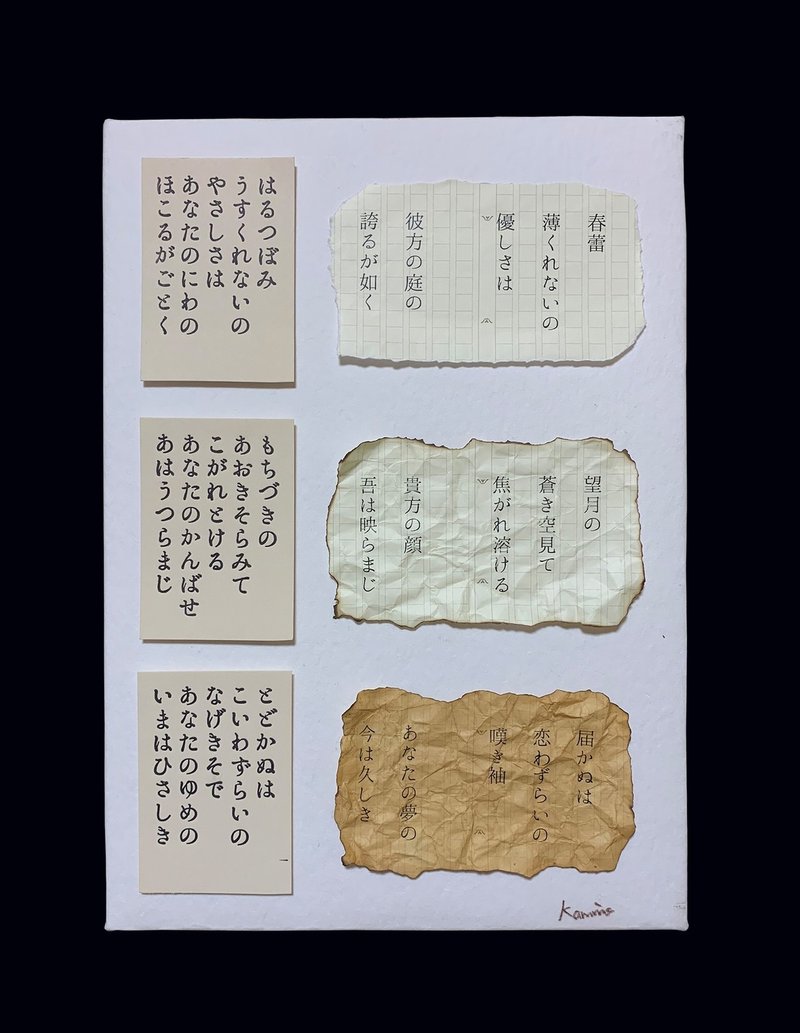 春蕾
薄くれないの
優しさは
彼方の庭の
誇るが如く
はるつぼみ
うすくれないの
やさしさは
あなたのにわの
ほこるがごとく
望月の
蒼き空見て
焦がれ溶ける
貴方の顔
吾は映らまじ
もちづきの
あおきそらみて
こがれとける
あなたのかんばせ
あはうつらまじ
届かぬは
恋わずらいの
嘆き袖
あなたの夢の
今は久しき
とどかぬは
こいわずらいの
なげきそで
あなたのゆめの
いまはひさしき